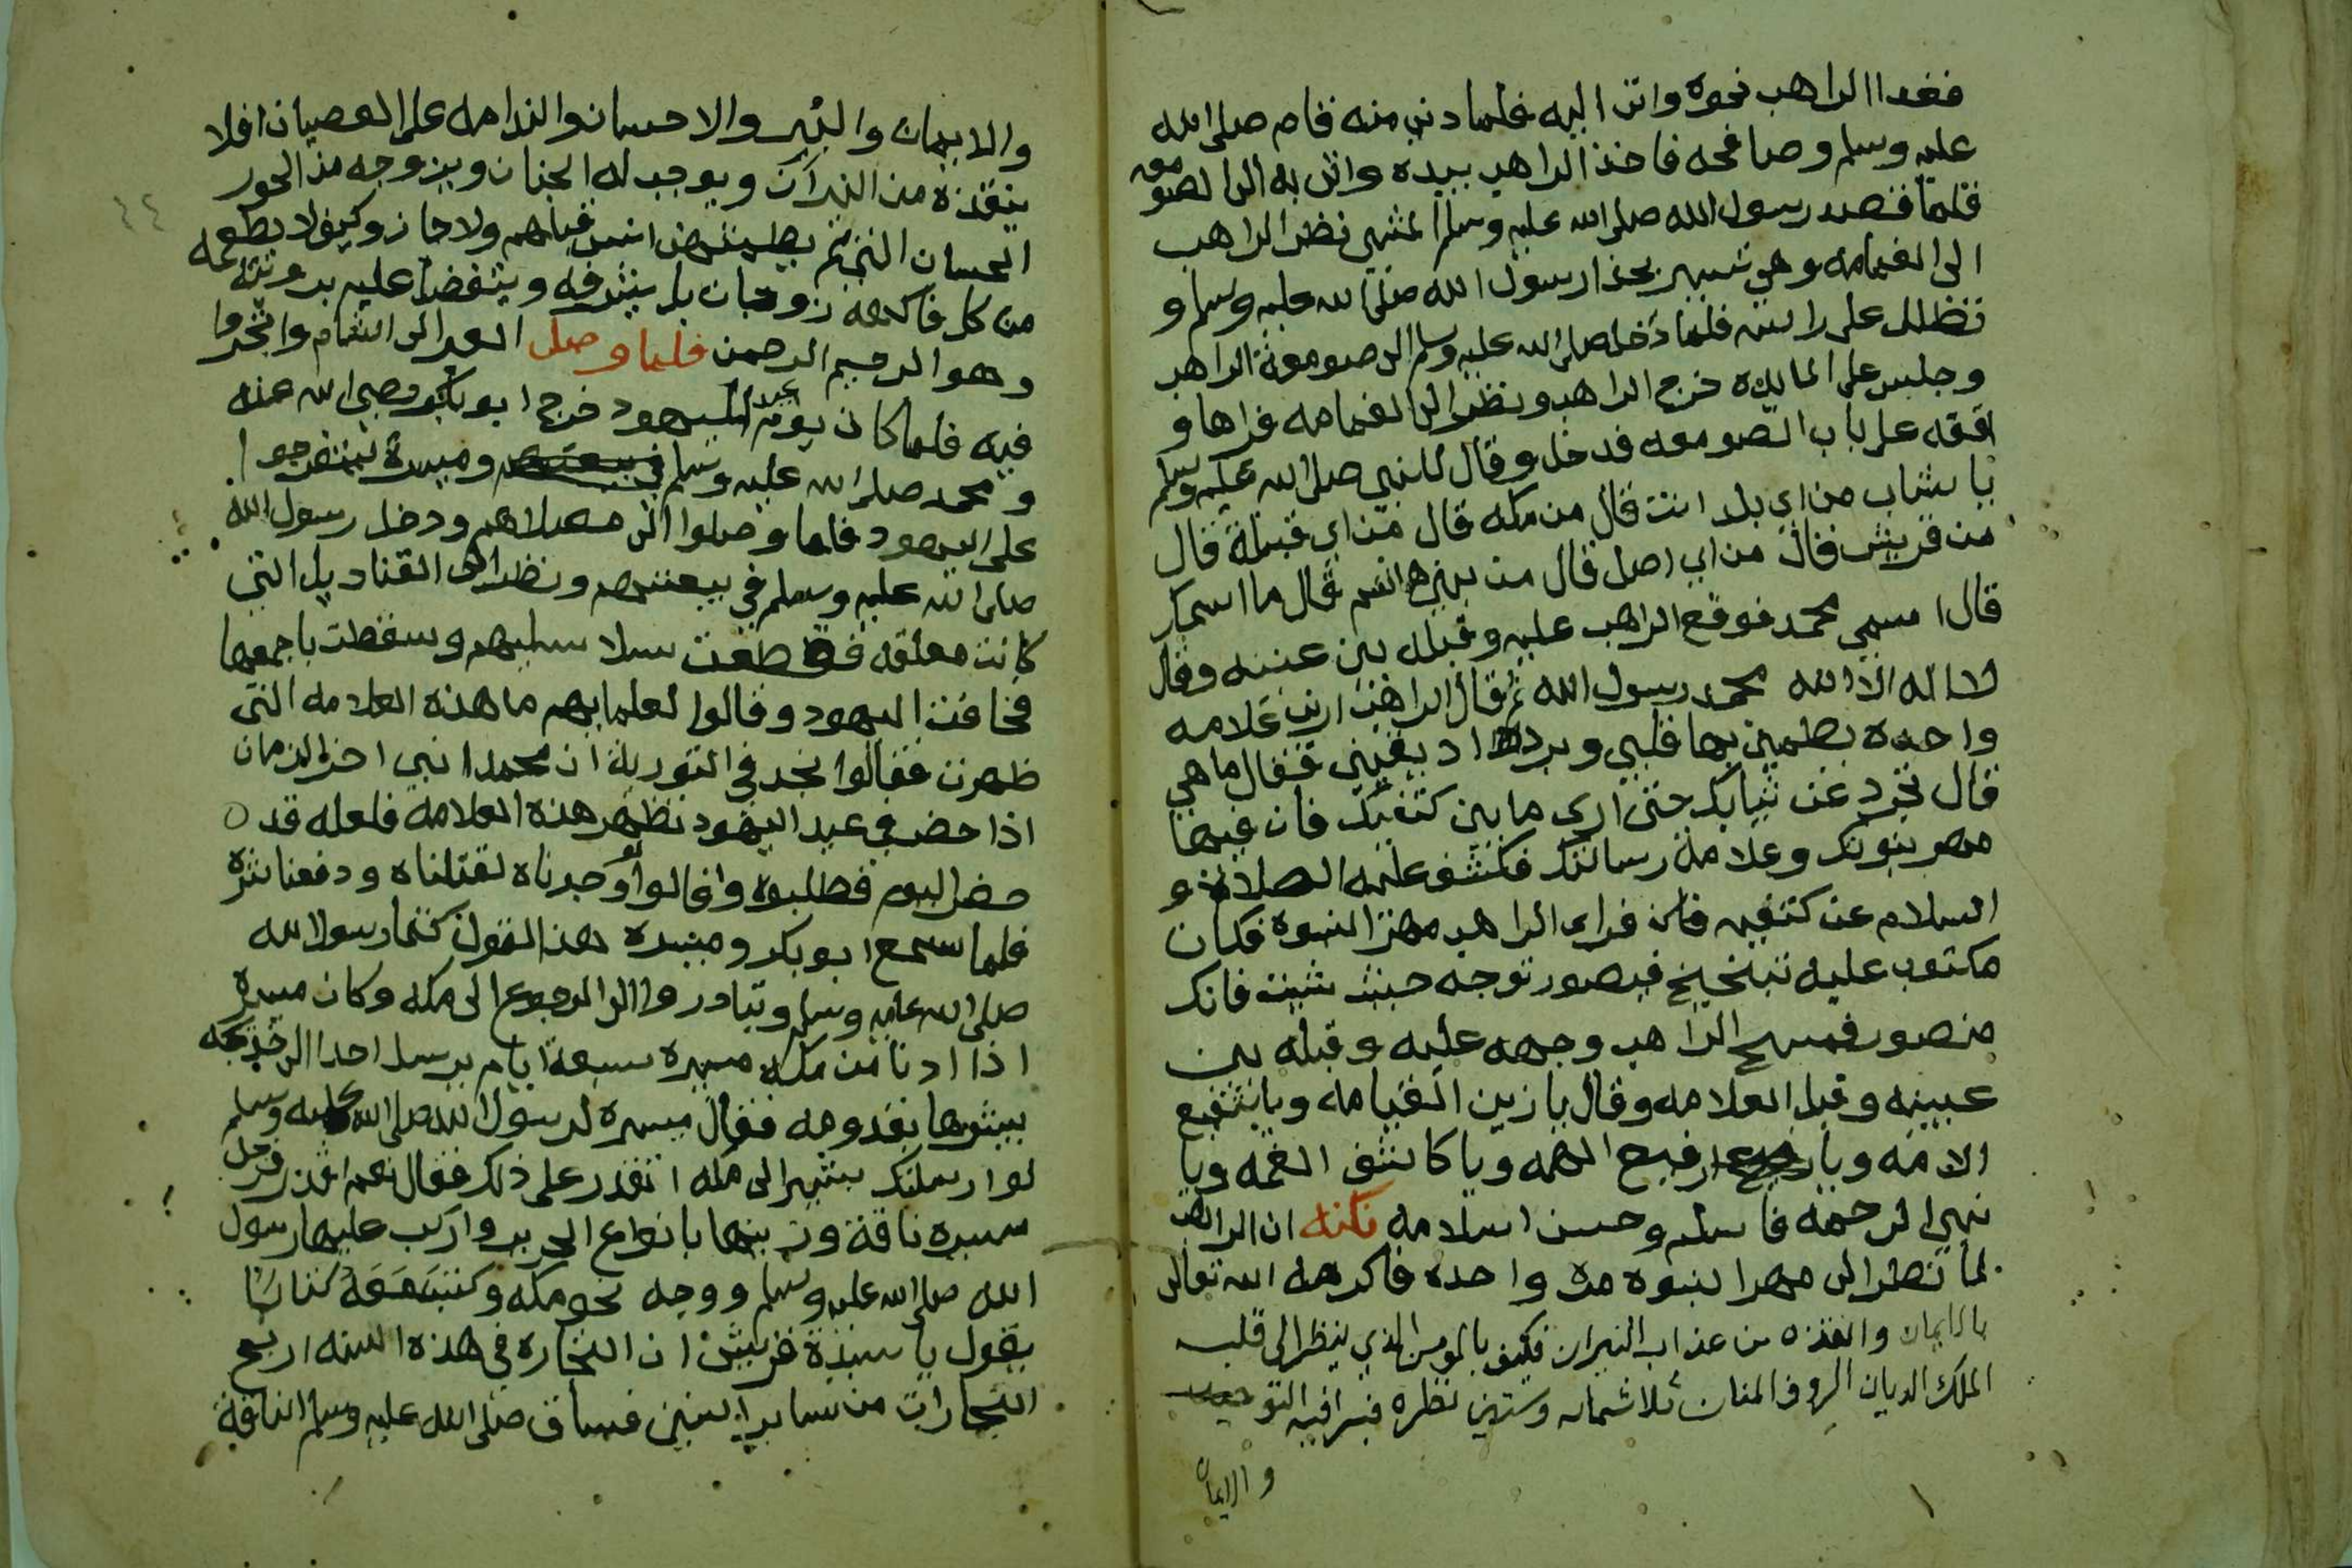 فغدا الراهب نحوه واتي اليه فلما دني منه فقام صلي الله
عليه وسلم وصافحه فاخذ الراهب بيده واتي به الي الصومعه
فلما قصد رسول الله صلي الله عليه وسلم المشي نظر الراهب
الي الغمامه وهي تسير بحذا رسول الله صلي الله عليه وسلم و
تظلل علي راسه فلما دخل صلي الله عليه وسلم الي صومعة الراهب
وجلس علي المايده خرج الراهب ونظر الي الغمامه فراها و
اقفه علي باب الصومعه فدخل وقال للنبي صلي الله عليه وسلم
يا شاب من اي بلد انت قال من مكه قال من اي قبيلة قال
من قريش قال من اي اصل قال من بني هاشم قال ما اسمك
قال اسمي محمد فوقع الراهب عليه وقبله بين عينيه وقال
لا اله الا الله محمد رسول الله ثم قال الراهب ارني علامه
واحده يطمين بها قلبي ويزداد يقيني فقال ما هي
قال تجرد عن ثيابك حتي اري ما بين كتفيك فان فيها
مهر نبوتك وعلامة رسالتك فكشف عليه الصلاة و
السلام عن كتفيه فراي الراهب مهر النبوة فكان
مكتوب عليه توجه حيث شيت فانك
منصور فمسح الراهب وجهه عليه وقبله بين
عينيه وقبل العلامه وقال يا زين القيامه ويا شفيع
الامه ويا رفيع الهمه ويا كاشف الغمه ويا
نبي الرحمه فاسلم وحسن اسلامه نكته ان الراهب
لما نظر الي مهر النبوه مره واحده فاكرمه الله تعالي
بالايمان وانقذه من عذاب النيران فكيف بالمومن الذي ينظر الي قلبه
الملك الديان الروف المنان ثلاثمايه وستين نظره فيرا فيه التوحيد
والايمان
والايمان والبر والاحسان والندامه علي العصيان افلا
ينقذه من النيران ويوجب له الجنان ويزوجه من الحور
الحسان التي لم يطمثهن انس قبلهم ولا جان وكيف لا يطعمه
من كل فاكهه زوجان بل يشرفه ويتفضل عليه برويته
وهو الرحيم الرحمن فلما وصل العير الي الشام واتجروا
فيه فلما كان يوم عيد اليهود خرج ابو بكر رضي الله عنه
ومحمد صلي الله عليه وسلم وميسرة ليتفرجوا
علي اليهود فلما وصلوا الي مصلاهم ودخل رسول الله
صلي الله عليه وسلم في بيعتهم ونظر الي القناديل التي
كانت معلقه فقطعت سلاسليهم وسقطت باجمعها
فخافت اليهود وقالوا لعلمايهم ما هذه العلامه التي
ظهرت فقالوا نجد في التورية ان محمدا نبي اخر الزمان
اذا حضر في عيد اليهود تظهر هذه العلامه فلعله قد
حضر اليوم فطلبوه وقالوا لو وجدناه لقتلناه ودفعنا شره
فلما سمع ابو بكر وميسره هذا القول كتما رسول الله
صلي الله عليه وسلم وتبادروا الي الرجوع الي مكه وكان ميسره
اذا دنا من مكه مسيرة سبعة ايام يرسل احدا الي خديجه
يبشرها بقدومه فقال ميسره لرسول الله صلي الله عليه وسلم
لو ارسلتك بشيرا الي مكه اتقدر علي ذلك فقال نعم اقدر فرحل
ميسره ناقة وزينها بانواع الحرير واركب عليها رسول
الله صلي الله عليه وسلم ووجه نحو مكه وكتب معه كتابا
يقول يا سيدة قريش ان التجاره في هذه السنه اربح
التجارات من ساير السنين فساق صلي الله عليه وسلم الناقة